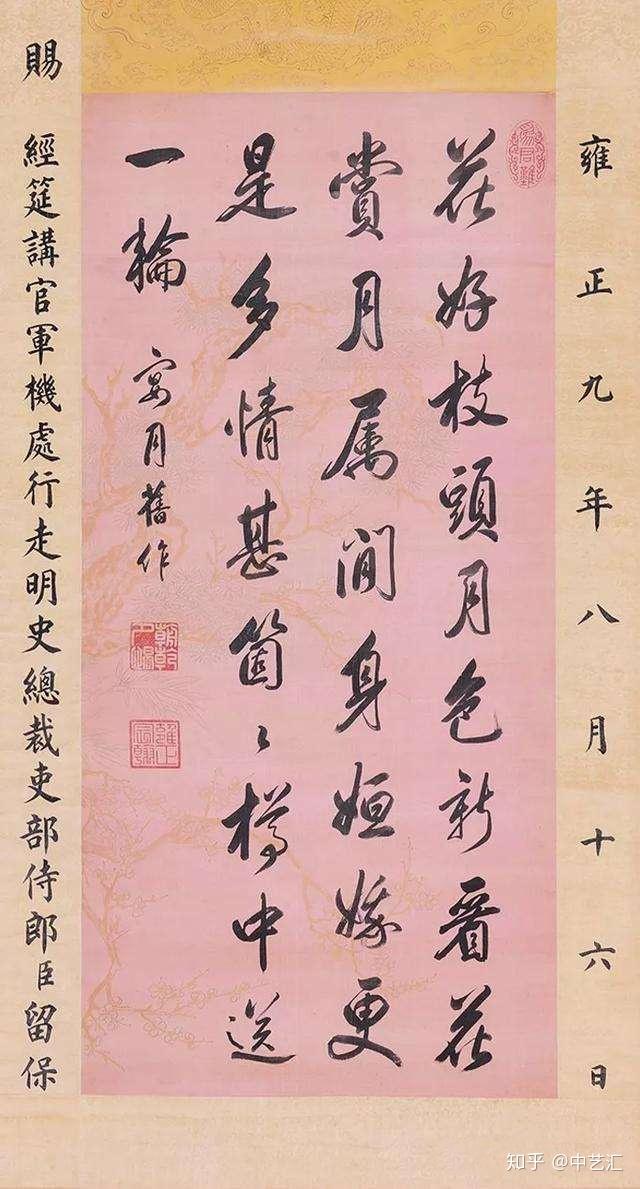 雍正九年八月十六日
為君難
花好枝頭月色新看花
賞月属閒身姮娥更
是多情甚箇〻樽中送
一輪
宴月舊作
朝乾夕惕
雍正宸翰
賜 經筵講官軍機處行走明史總裁吏部侍郎臣留保
知乎 @中艺汇